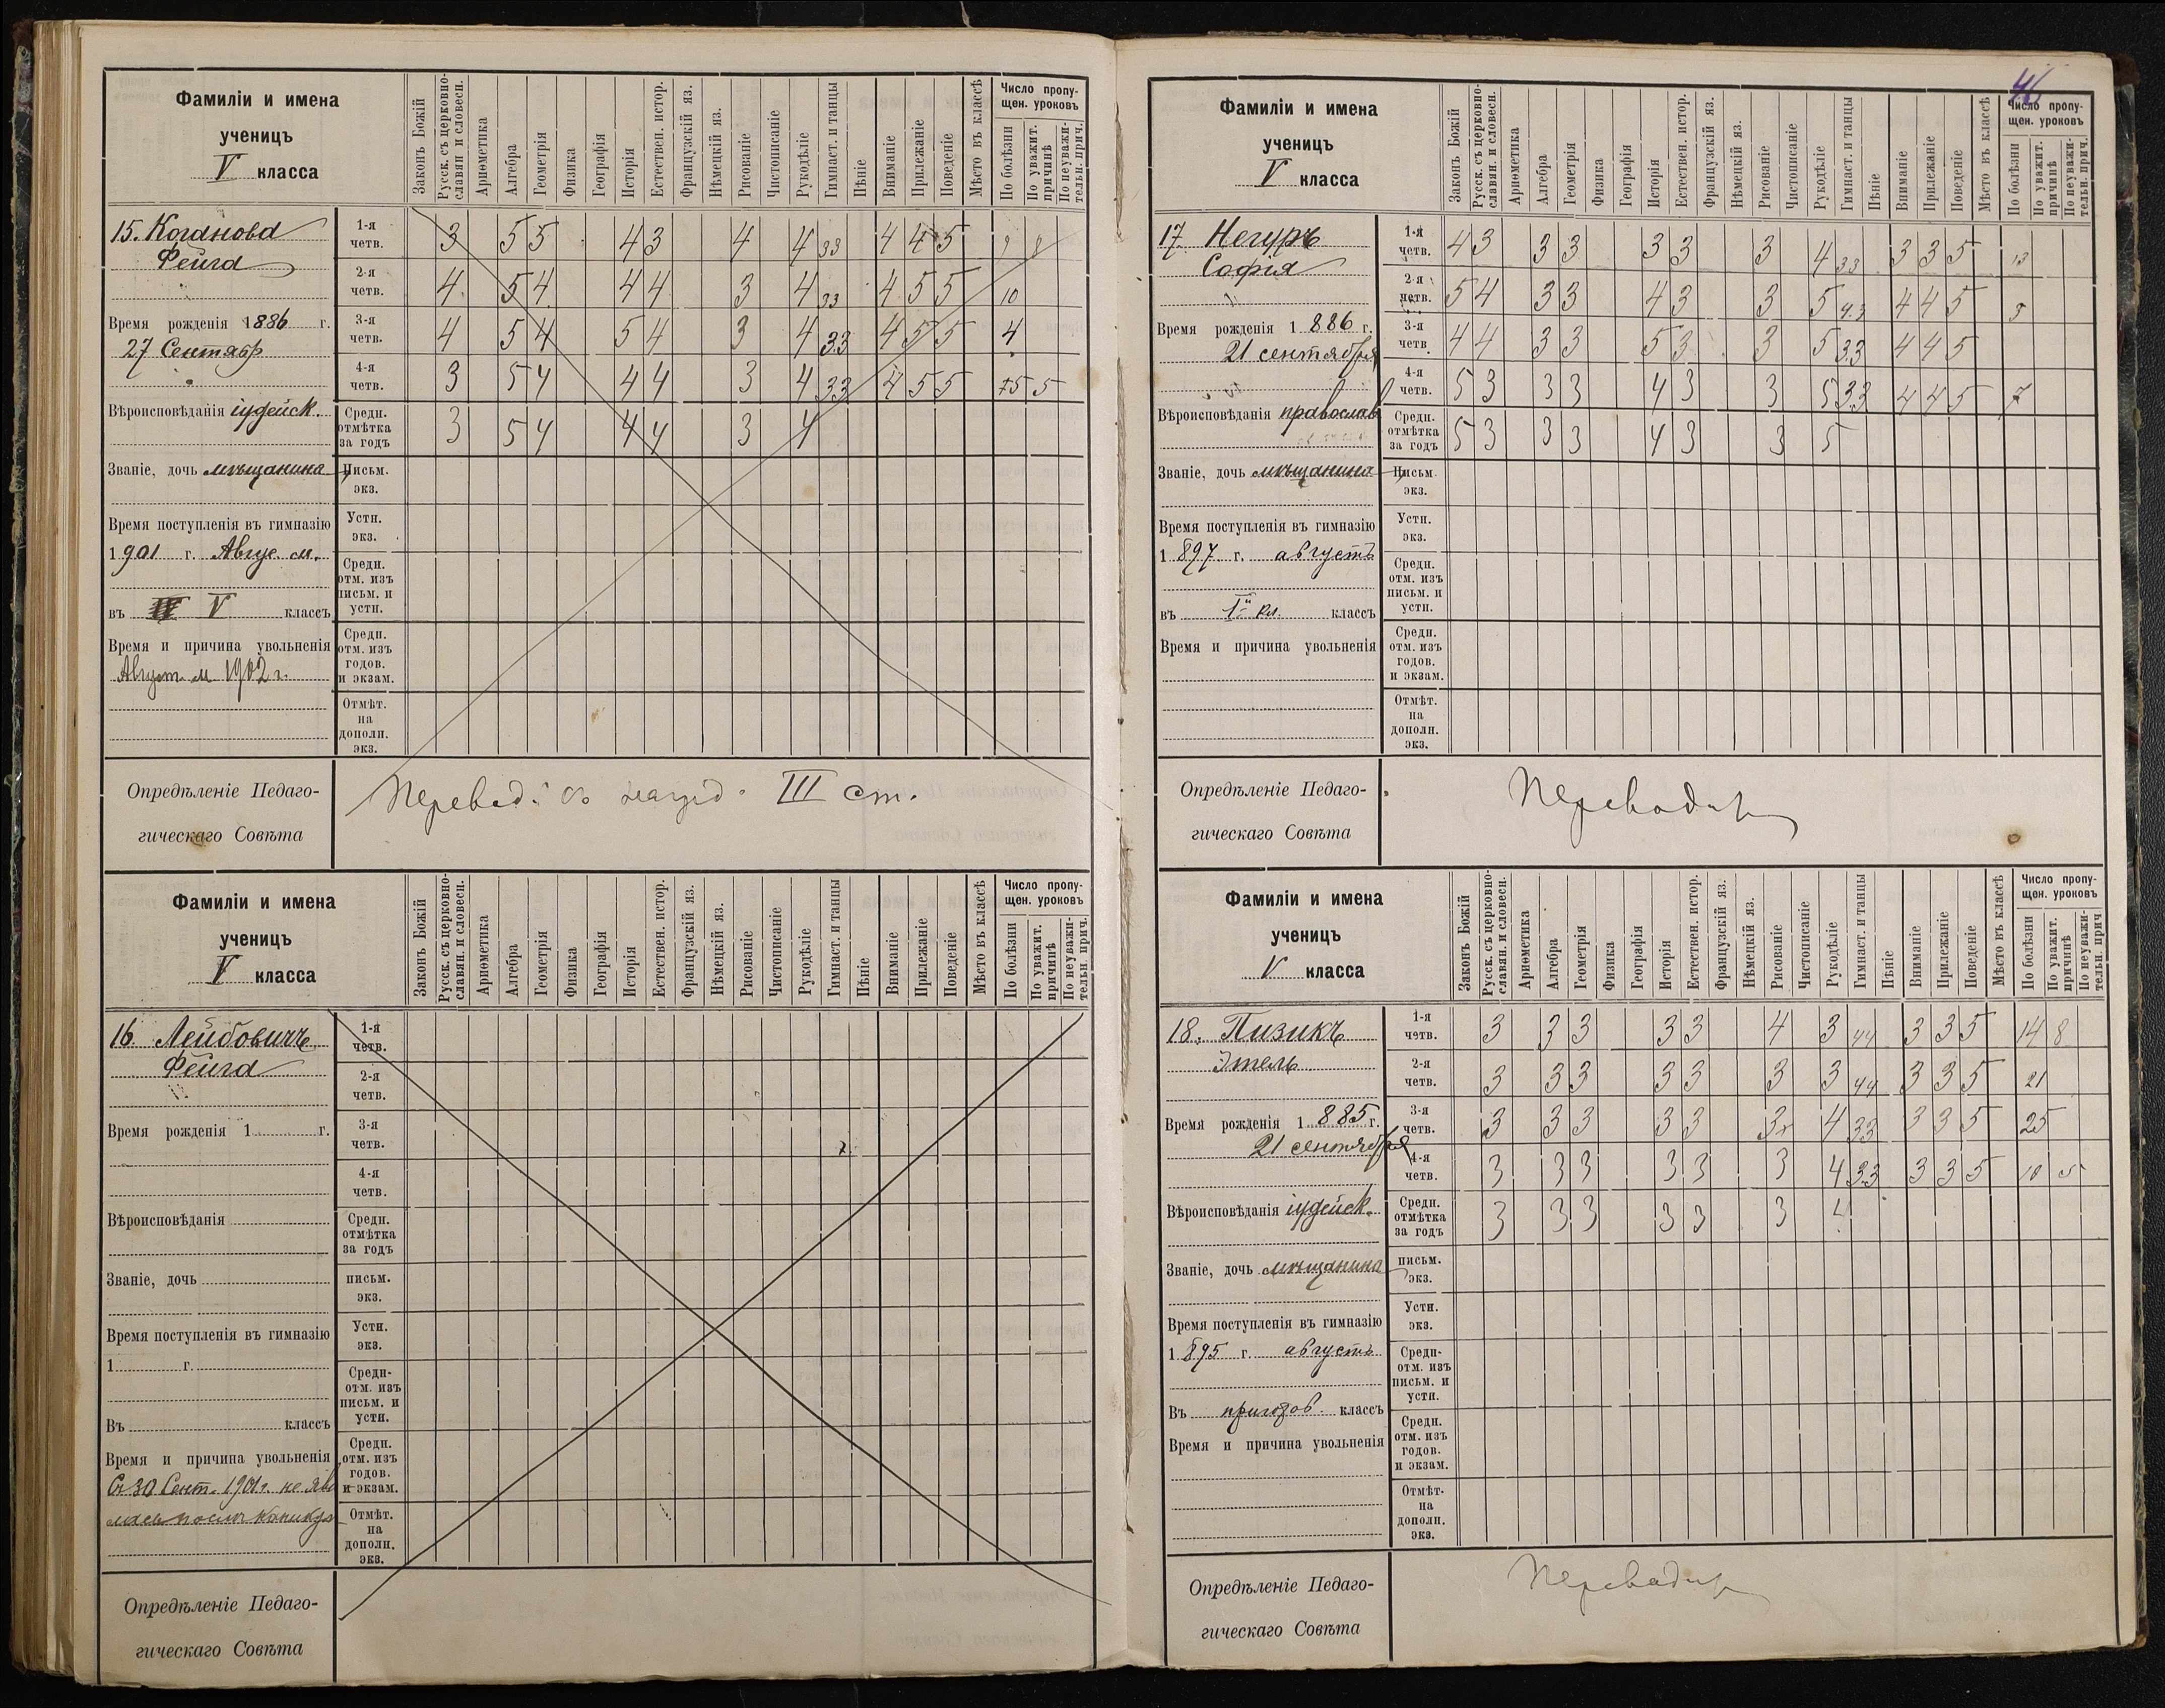 Фамиліи и имена
ученицъ
V класса
Законъ Божій
Русск. съ церковно-
славян и словесн.
Ариөметика
Алгебра
Геометрія
Физика
Географія
Исторія
Естествен. истор.
Французскій яз.
Нѣмецкій яз.
Рисованіе
Чистописаніе
Рукодѣліе
Гимнаст. и танцы
Пѣніе
Вниманіе
Прилежаніе
Поведеніе
Мѣсто въ классѣ
Число пропу-
щен. уроковъ
По болѣзни
По уважит.
причинѣ
По неуважи-
тельн. прич.
15. Коганова
Фейга
Время рожденія 1886 г.
27 Сентябр
Вѣроисповѣданія іудейск.
Званіе, дочь мѣщанина
Время поступленія въ гимназію
1901 г. Авгус. м.
въ IV V классъ
Время и причина увольненія
Август. м 1902 г.
1-я четв. 3 5 5 4 3 4 4 3 3 4 4 5
2-я четв. 4 5 4 4 4 3 4 33 4 5 5 10
3-я четв. 4 5 4 5 4 3 4 33 4 5 5 4
4-я четв. 3 5 4 4 4 3 4 33 4 5 5 75 5
Средн. отмѣтка за годъ 3 5 4 4 4 3 4
Письм. экз.
Устн. экз.
Средн. отм. изъ письм. и устн.
Средн. отм. изъ годов. и экзам.
Отмѣт. на дополн. экз.
Опредѣленіе Педаго-
гическаго Совѣта
Перевод. съ наград. III ст.
Фамиліи и имена
ученицъ
V класса
Законъ Божій
Русск. съ церковно-
славян. и словесн.
Ариөметика
Алгебра
Геометрія
Физика
Географія
Исторія
Естествен. истор.
Французскій яз.
Нѣмецкій яз.
Рисованіе
Чистописаніе
Рукодѣліе
Гимнаст. и танцы
Пѣніе
Вниманіе
Прилежаніе
Поведеніе
Мѣсто въ классѣ
Число пропу-
щен. уроковъ
По болѣзни
По уважит.
причинѣ
По неуважи-
тельн. прич.
16 Лейбовичъ
Фейга
Время рожденія 1 г.
Вѣроисповѣданія
Званіе, дочь
Время поступленія въ гимназію
1 г.
Въ классъ
Время и причина увольненія
Съ 30 Сент. 1901 г. не яви
лась послѣ каникул
1-я четв.
2-я четв.
3-я четв.
4-я четв.
Средн. отмѣтка за годъ
письм. экз.
Устн. экз.
Средн- отм. изъ письм. и устн.
Средн. отм. изъ годов. и экзам.
Отмѣт. на дополн. экз.
Опредѣленіе Педаго-
гическаго Совѣта
46
Фамиліи и имена
ученицъ
V класса
Законъ Божій
Русск. съ церковно-
славян. и словесн.
Ариөметика
Алгебра
Геометрія
Физика
Географія
Исторія
Естествен. истор.
Французскій яз.
Нѣмецкій яз.
Рисованіе
Чистописаніе
Рукодѣліе
Гимнаст. и танцы
Пѣніе
Вниманіе
Прилежаніе
Поведеніе
Мѣсто въ классѣ
Число пропу-
щен. уроковъ
По болѣзни
По уважит.
причинѣ
По неуважи-
тельн. прич.
17. Негуръ
Софія
Время рожденія 1886 г.
21 сентября
Вѣроисповѣданія православ
Званіе, дочь мѣщанина
Время поступленія въ гимназію
1897 г. августъ
въ Iй кл. классъ
Время и причина увольненія
1-я четв. 4 3 3 3 3 3 3 4 33 3 3 5 13
2-я четв. 5 4 3 3 4 3 3 5 4.3 4 4 5 5
3-я четв. 4 4 3 3 5 3 3 5 33 4 4 5
4-я четв. 5 3 3 3 4 3 3 5 33 4 4 5 7
Средн. отмѣтка за годъ 5 3 3 3 4 3 3 5
Письм. экз.
Устн. экз.
Средн. отм. изъ письм. и устн.
Средн. отм. изъ годов. и экзам.
Отмѣт. на дополн. экз.
Опредѣленіе Педаго-
гическаго Совѣта
Переводит
Фамиліи и имена
ученицъ
V класса
Законъ Божій
Русск. съ церковно-
славян. и словесн.
Ариөметика
Алгебра
Геометрія
Физика
Географія
Исторія
Естествен. истор.
Французскій яз.
Нѣмецкій яз.
Рисованіе
Чистописаніе
Рукодѣліе
Гимнаст. и танцы
Пѣніе
Вниманіе
Прилежаніе
Поведеніе
Мѣсто въ классѣ
Число пропу-
щен. уроковъ
По болѣзни
По уважит.
причинѣ
По неуважи-
тельн. прич
18. Пизикъ
Этель
Время рожденія 1885 г.
21 сентября
Вѣроисповѣданія іудейск.
Званіе, дочь мѣщанина
Время поступленія въ гимназію
1895 г. августъ
Въ пригот. классъ
Время и причина увольненія
1-я четв. 3 3 3 3 3 4 3 44 3 3 5 14 8
2-я четв. 3 3 3 3 3 3 3 44 3 3 5 21
3-я четв. 3 3 3 3 3 3 4 33 3 3 5 25
4-я четв. 3 3 3 3 3 3 4 33 3 3 5 10 5
Средн. отмѣтка за годъ 3 3 3 3 3 3 4
письм. экз.
Устн. экз.
Средн- отм. изъ письм. и устн.
Средн. отм. изъ годов. и экзам.
Отмѣт- на дополн. экз.
Опредѣленіе Педаго-
гическаго Совѣта
Переводит